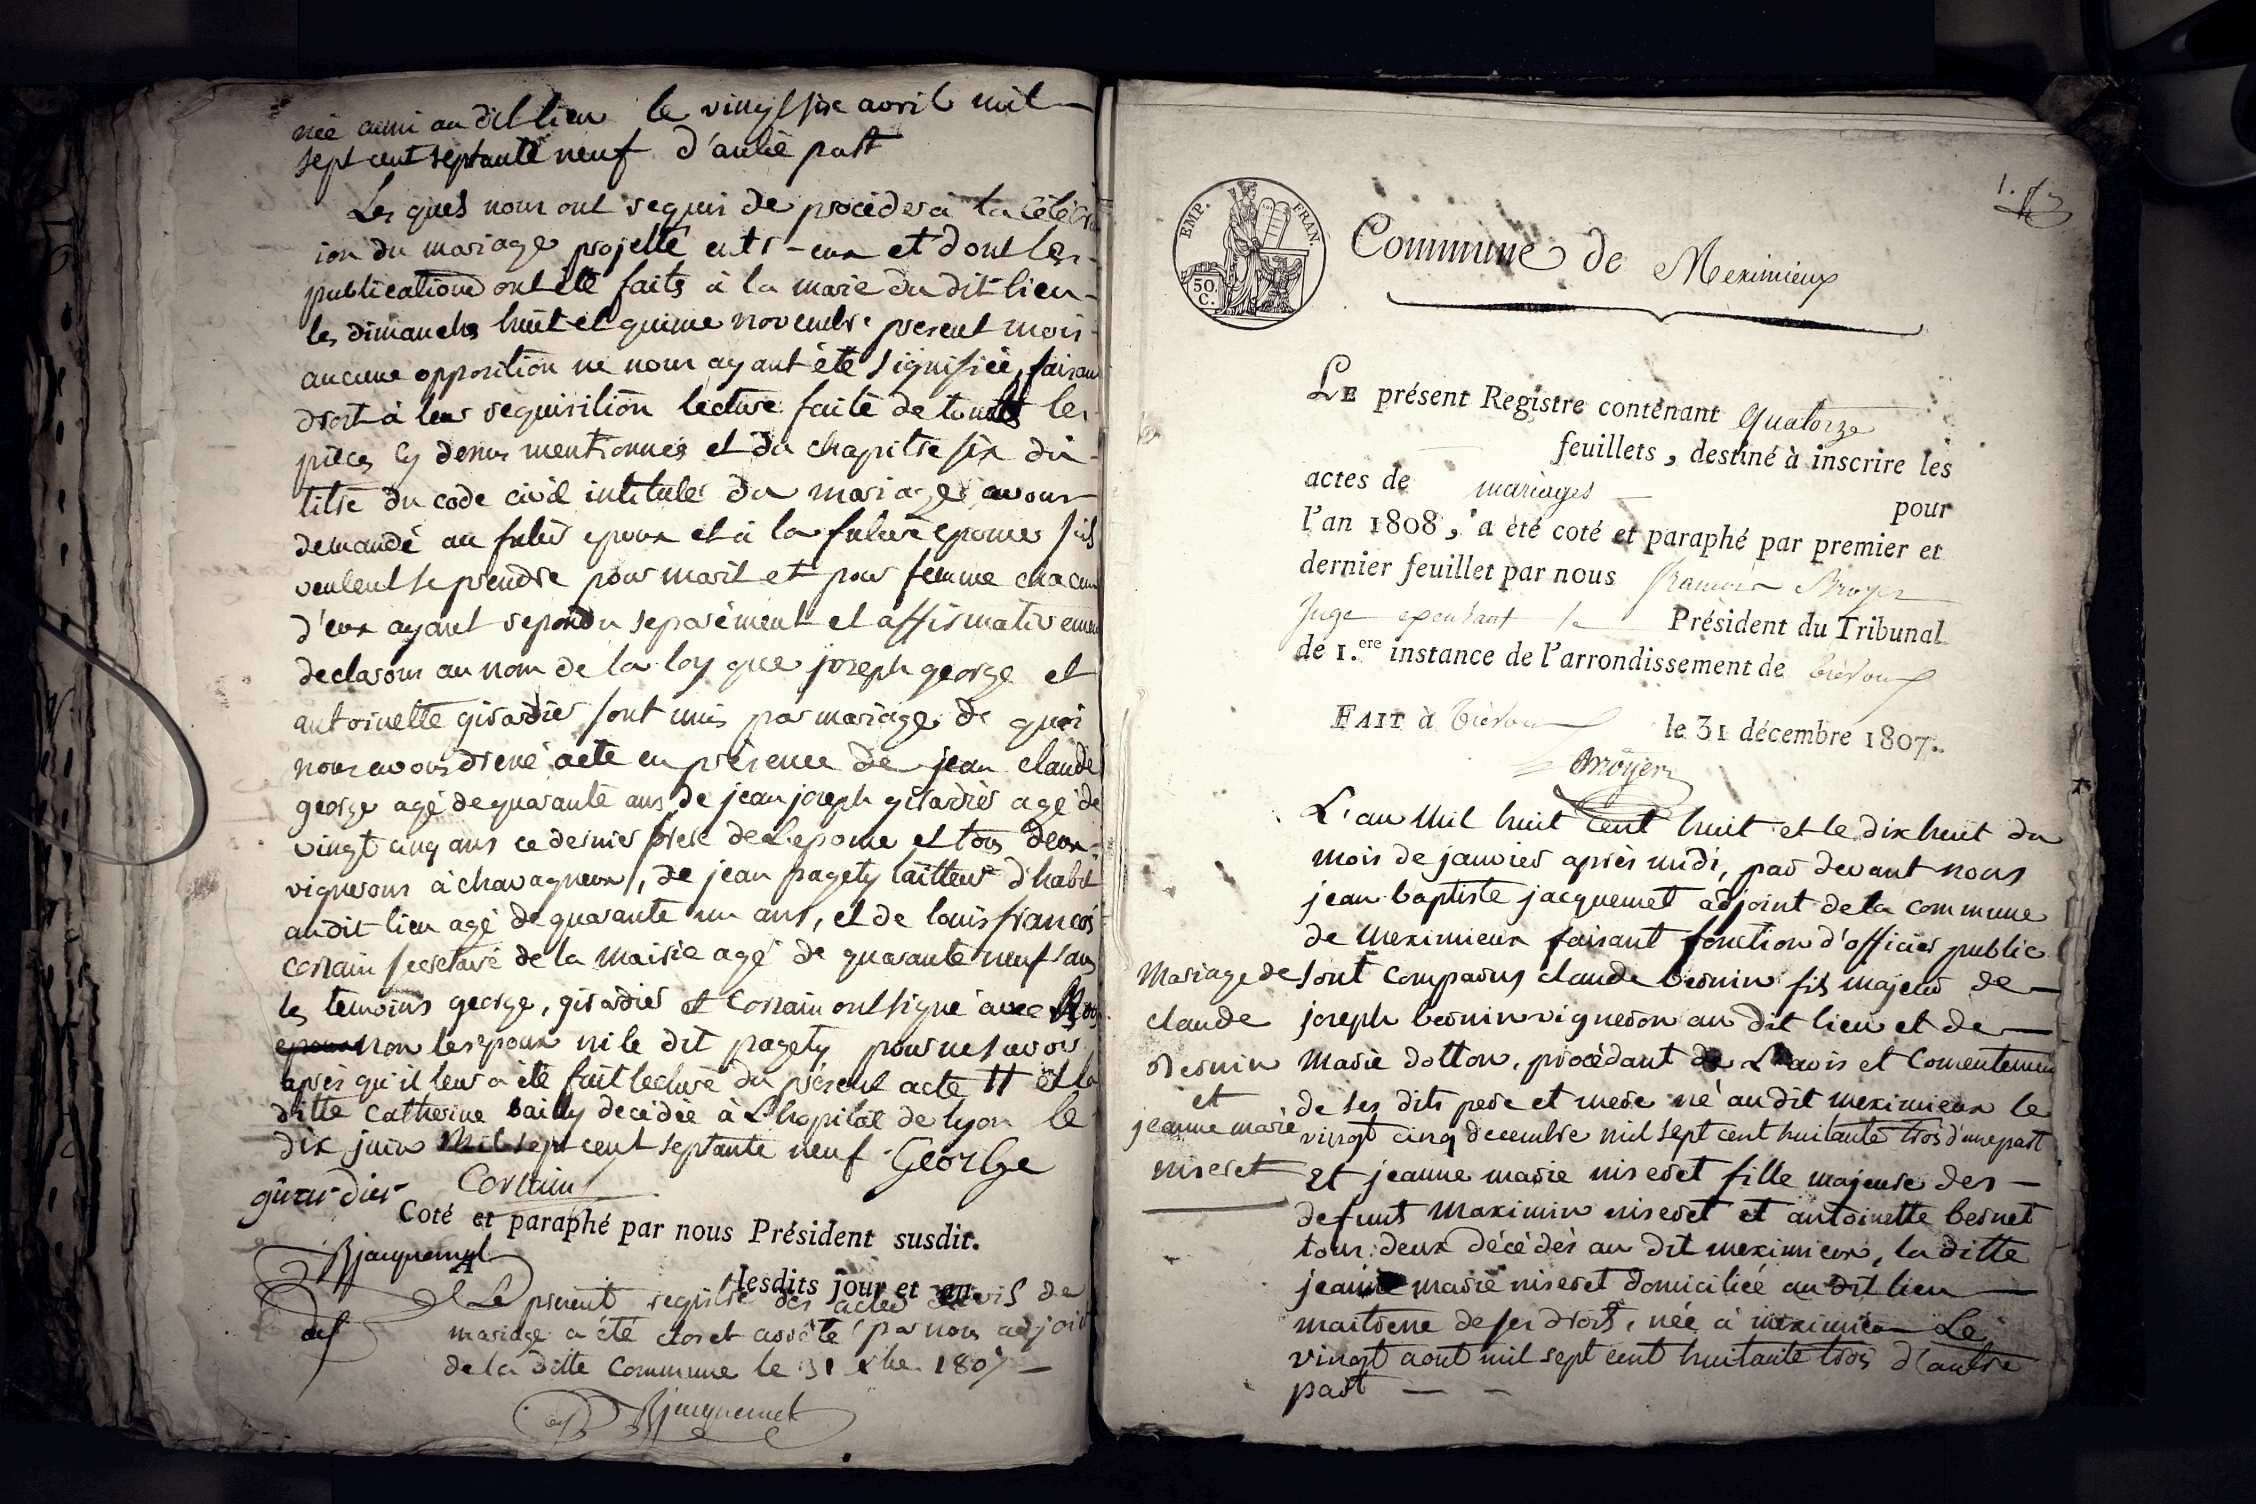 née aussi au dit lieu le vingt six avril mil
sept cent septante neuf d'autre part
Les quels nous ont requis de procéder à la célébra
ion du mariage projetté entr-eux et dont les
publications ont été faits à la marie du dit lieu
les dimanches huit et quinze novembre present mois
aucune opposition ne nous ayant été signifiée, faisant
droit à leur requisition lecture faite de toutes les
pièces cy dessus mentionnés et du chapitre six du
titre du code civil intituler du mariage avons
demandé au futur epoux et à la future epouse s'ils
veulent se prendre pour marit et pour femme chacun
d'eux ayant repondu separément et affirmativement
declarons au nom de la loy que joseph george et
antoinette girardier sont unis par mariage de quoi
nous avons dressé acte en présence de jean claude
george agé de quarante ans, de jean joseph girardier agé de
vingt cinq ans ce dernier frere de L'epouse et tous deux
vignerons à chavagneux, de jean pagety tailleur d'habit
au dit lieu agé de quarante un ans, et de louis françois
Corsain secretaire de la Mairie agé de quarante neuf ans
les temoins george, girardier et Corsain ont signé avec nous
non les epoux ni le dit pagety pour ne savoir
après qu'il leur a été fait lecture du présent acte et la
ditte Catherine bailly decédée à L'hopital de lyon le
dix juin Mil sept cent septante neuf George
girardier Corsain
Coté et paraphé par nous Président susdit.
Bjacquemet
lesdits jour et an
Le present registre des actes civils de
mariage a été clos et arrêté par nous adjoint
de la ditte Commune le 31 xbre 1807
adj Bjacquemet
1.er
EMP. FRAN.
50. C.
Commune de Meximieux
LE présent Registre contenant Quatorze
feuillets, destiné à inscrire les
actes de mariages pour
l'an 1808, a été coté et paraphé par premier et
dernier feuillet par nous François Broyer
Juge exerçant le Président du Tribunal
de 1.ere instance de l'arrondissement de trévoux
FAIT à Trévoux le 31 décembre 1807.
Broyer
L'an Mil huit Cent huit et le dix huit du
mois de janvier après midi, par devant nous
jean baptiste jacquemet adjoint de la commune
de Meximieux faisant fonction d'officier public
sont comparus claude bernin fils majeur de
joseph bernin vigneron au dit lieu et de
Marie dotton, procédant de L'avis et Consentement
de ses dits pere et mere né au dit meximieux le
vingt cinq decembre mil sept cent huitante trois d'une part
et jeanne marie niseret fille majeure des
defunts Maximin niseret et antoinette bernet
tous deux décédés au dit meximieux, la ditte
jeanne marie niseret domiciliée au dit lieu
maitresse de ses droits, née à meximieux Le
vingt aout mil sept cent huitante trois d'autre
part
Mariage de
claude
Bernin
et
jeanne marie
niseret